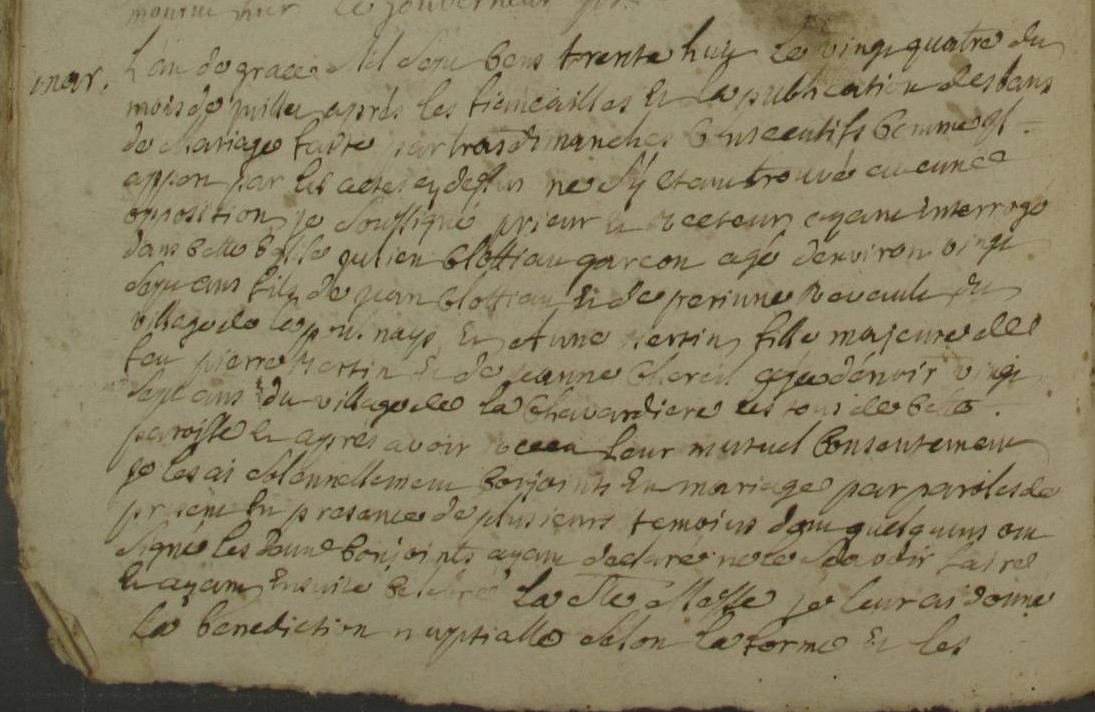 mar. L'an de grace Mil sept cens trente huit Le vingt quatre du
mois de juillet aprés les fiancailles Et La publication des bans
de Mariage faitte par trois dimanches Consecutifs Comme Il
appert par les actes cy dessus ne s'y Etant trouvé aucune
opposition je soussigné prieur Et Recteur ayant Interrogé
dans Cette Eglise julien Clottiau garcon agé d'environ vingt
sept ans fils de jean Clottiau Et de perinne du
village de Et Anne Mertin fille majeure de
feu pierre Mertin Et de jeanne agée d'environ vingt
sept ans du village de La Chavardiere les tous de Cette
paroisse Et aprés avoir receu Leur mutuel Consentement
je les ai solennellement Conjoints En mariage par paroles de
present En presance de plusieurs temoins dont quelques uns ont
signé les Conjoints ayant declaré ne le scavoir faire
Et ayant Ensuite Celebré La Ste Messe je leur ai donné
La benediction nuptialle selon La forme Et les